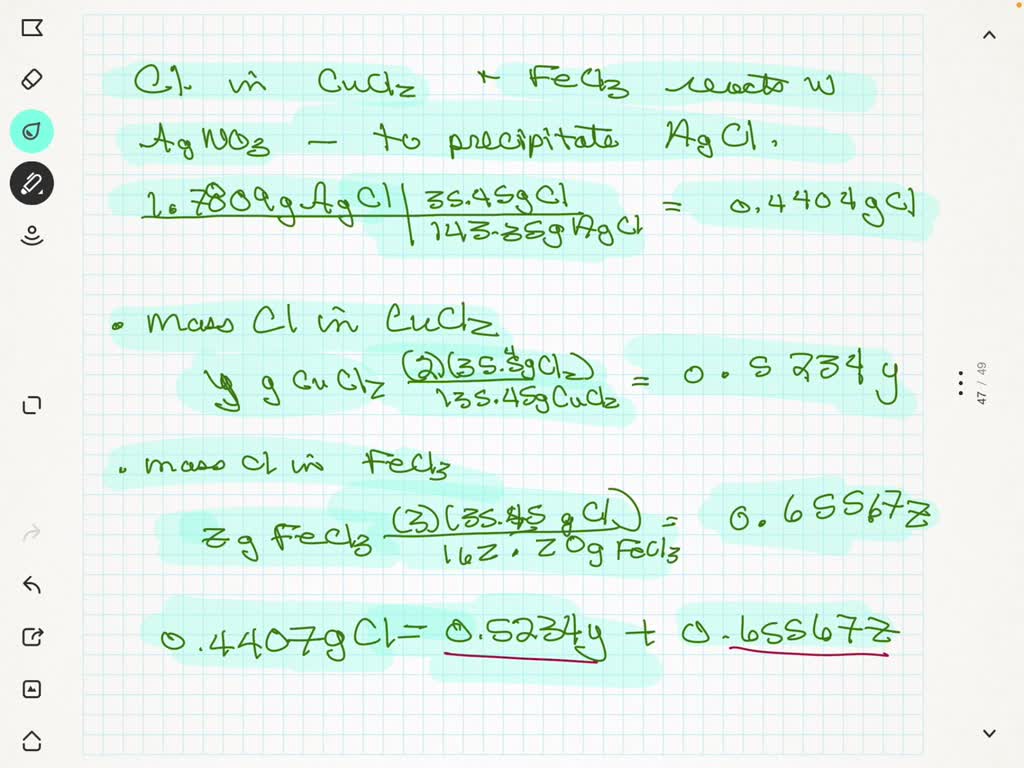 Cl in CuCl2 + FeCl3 reacts w
AgNO3 – to precipitate AgCl.
1.7809g AgCl | 35.45gCl / 143.35g AgCl = 0.4404gCl
• mass Cl in CuCl2
y g CuCl2 (2)(35.45gCl2) / 135.45gCuCl2 = 0.5234y
• mass Cl in FeCl3
z g FeCl3 (3)(35.45 g Cl) / 162.20g FeCl3 = 0.65567z
0.4407gCl = 0.5234y + 0.65567z
47 / 49